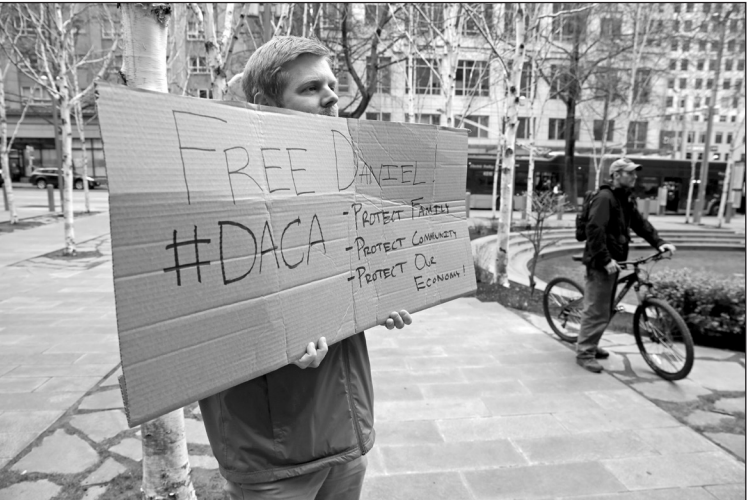 FREE DANIEL!
#DACA
-PROTECT FAMILY
-PROTECT COMMUNITY
-PROTECT OUR
ECONOMY!